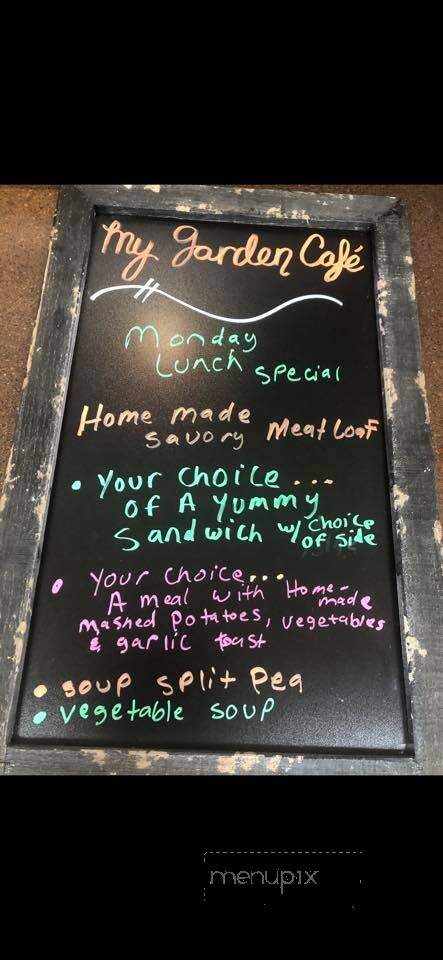 My Garden Café
Monday
Lunch Special
Home made
Savory Meat Loaf
• Your Choice...
of A Yummy
Sandwich w/ Choice
of Side
• Your Choice...
A meal with Home-
made
Mashed Potatoes, vegetables
& garlic toast
• Soup Split Pea
• vegetable Soup
menupix